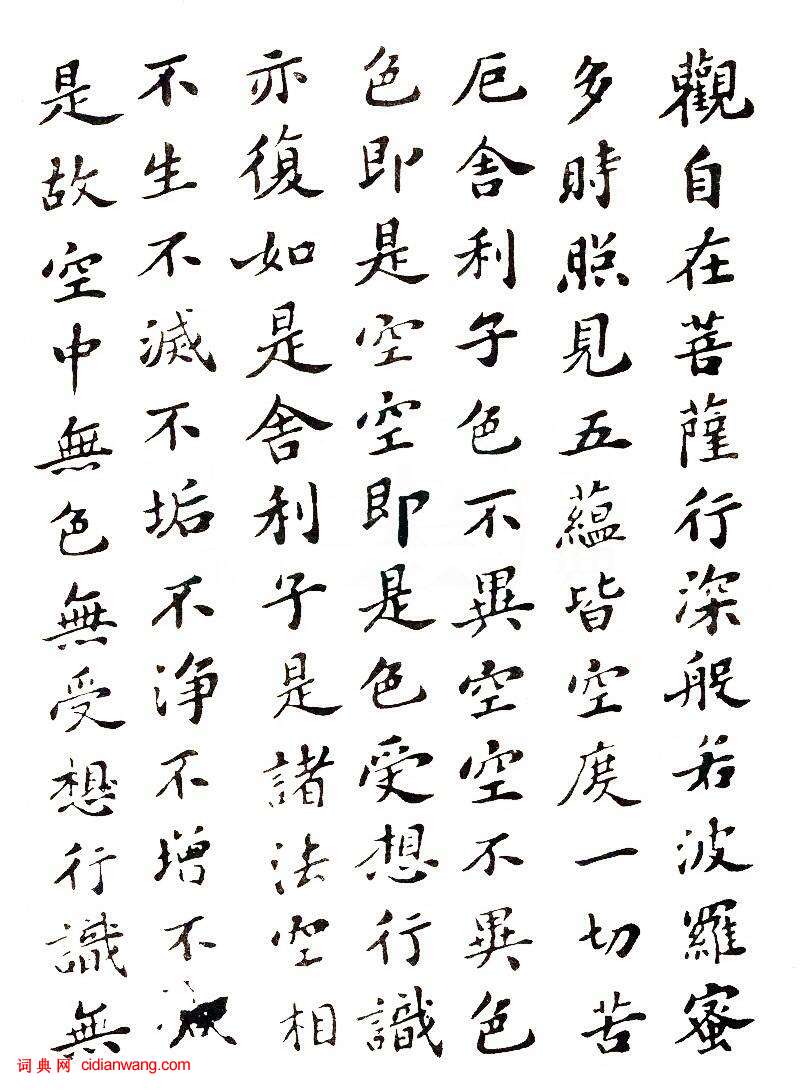 觀自在菩薩行深般若波羅蜜
多時照見五蘊皆空度一切苦
厄舍利子色不異空空不異色
色即是空空即是色受想行識
亦復如是舍利子是諸法空相
不生不滅不垢不淨不增不減
是故空中無色無受想行識無
词典网 cidianwang.com